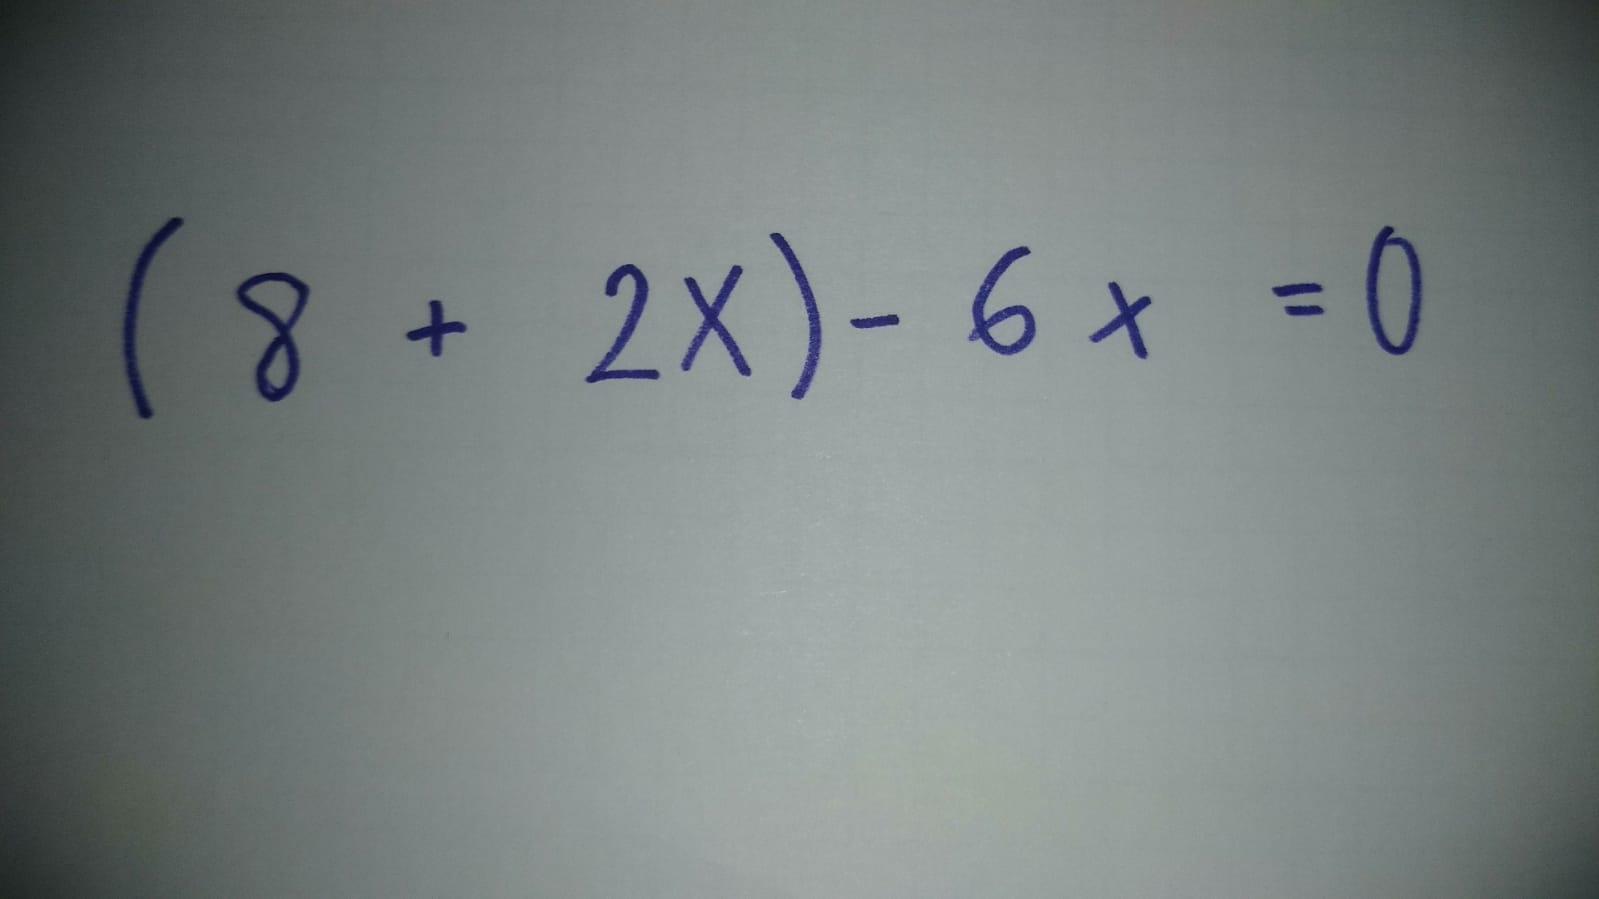 (8 + 2X) - 6x = 0